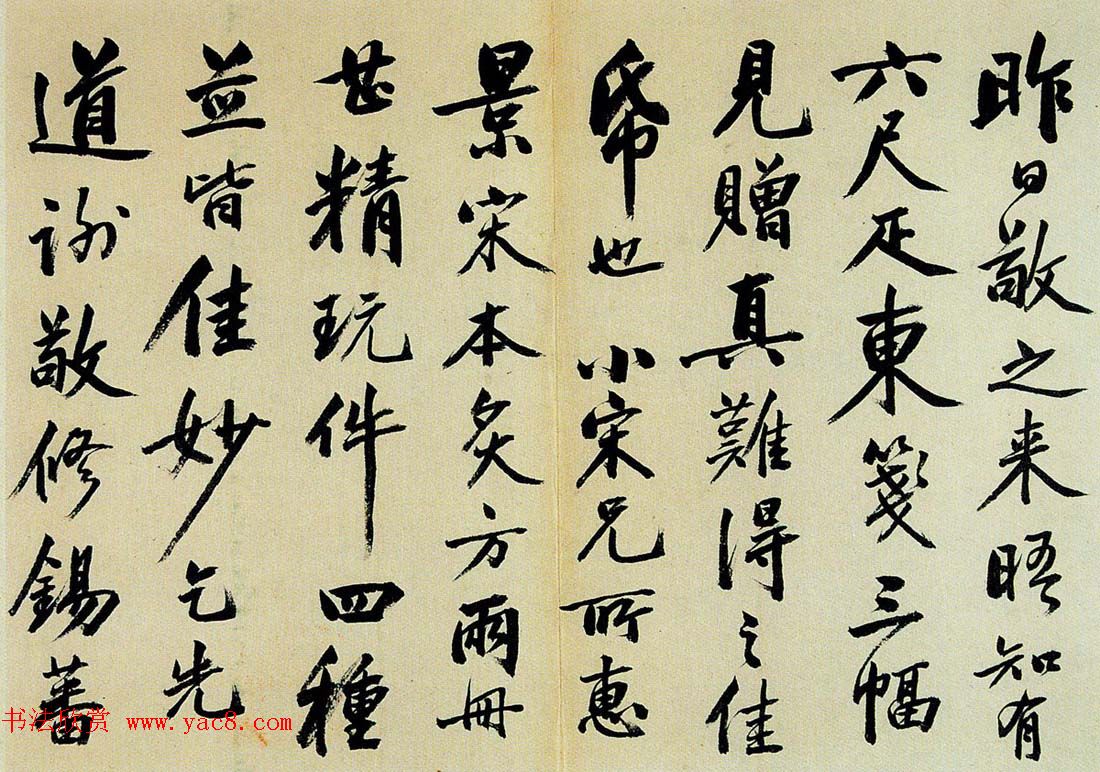 昨日敬之来晤知有
六尺疋東箋三幅
見贈真難得之佳
帋也小宋兄所惠
景宋本灸方兩冊
甚精玩件四種
並皆佳妙乞先
道謝敬修錫蕃
书法欣赏 www.yac8.com